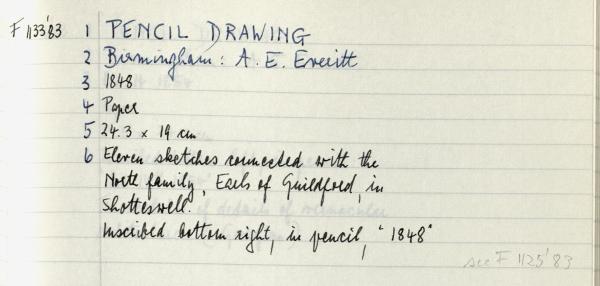 F 1133'83 1 PENCIL DRAWING
2 Birmingham: A. E. Everitt
3 1848
4 Paper
5 24.3 x 19 cm
6 Eleven sketches connected with the
North family, Earls of Guildford, in
Shotteswell.
Inscribed bottom right, in pencil, "1848"
see F 1125'83